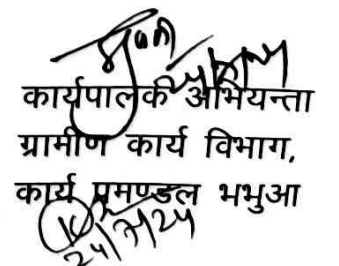 कार्यपालक अभियन्ता
ग्रामीण कार्य विभाग,
कार्य प्रमण्डल भभुआ